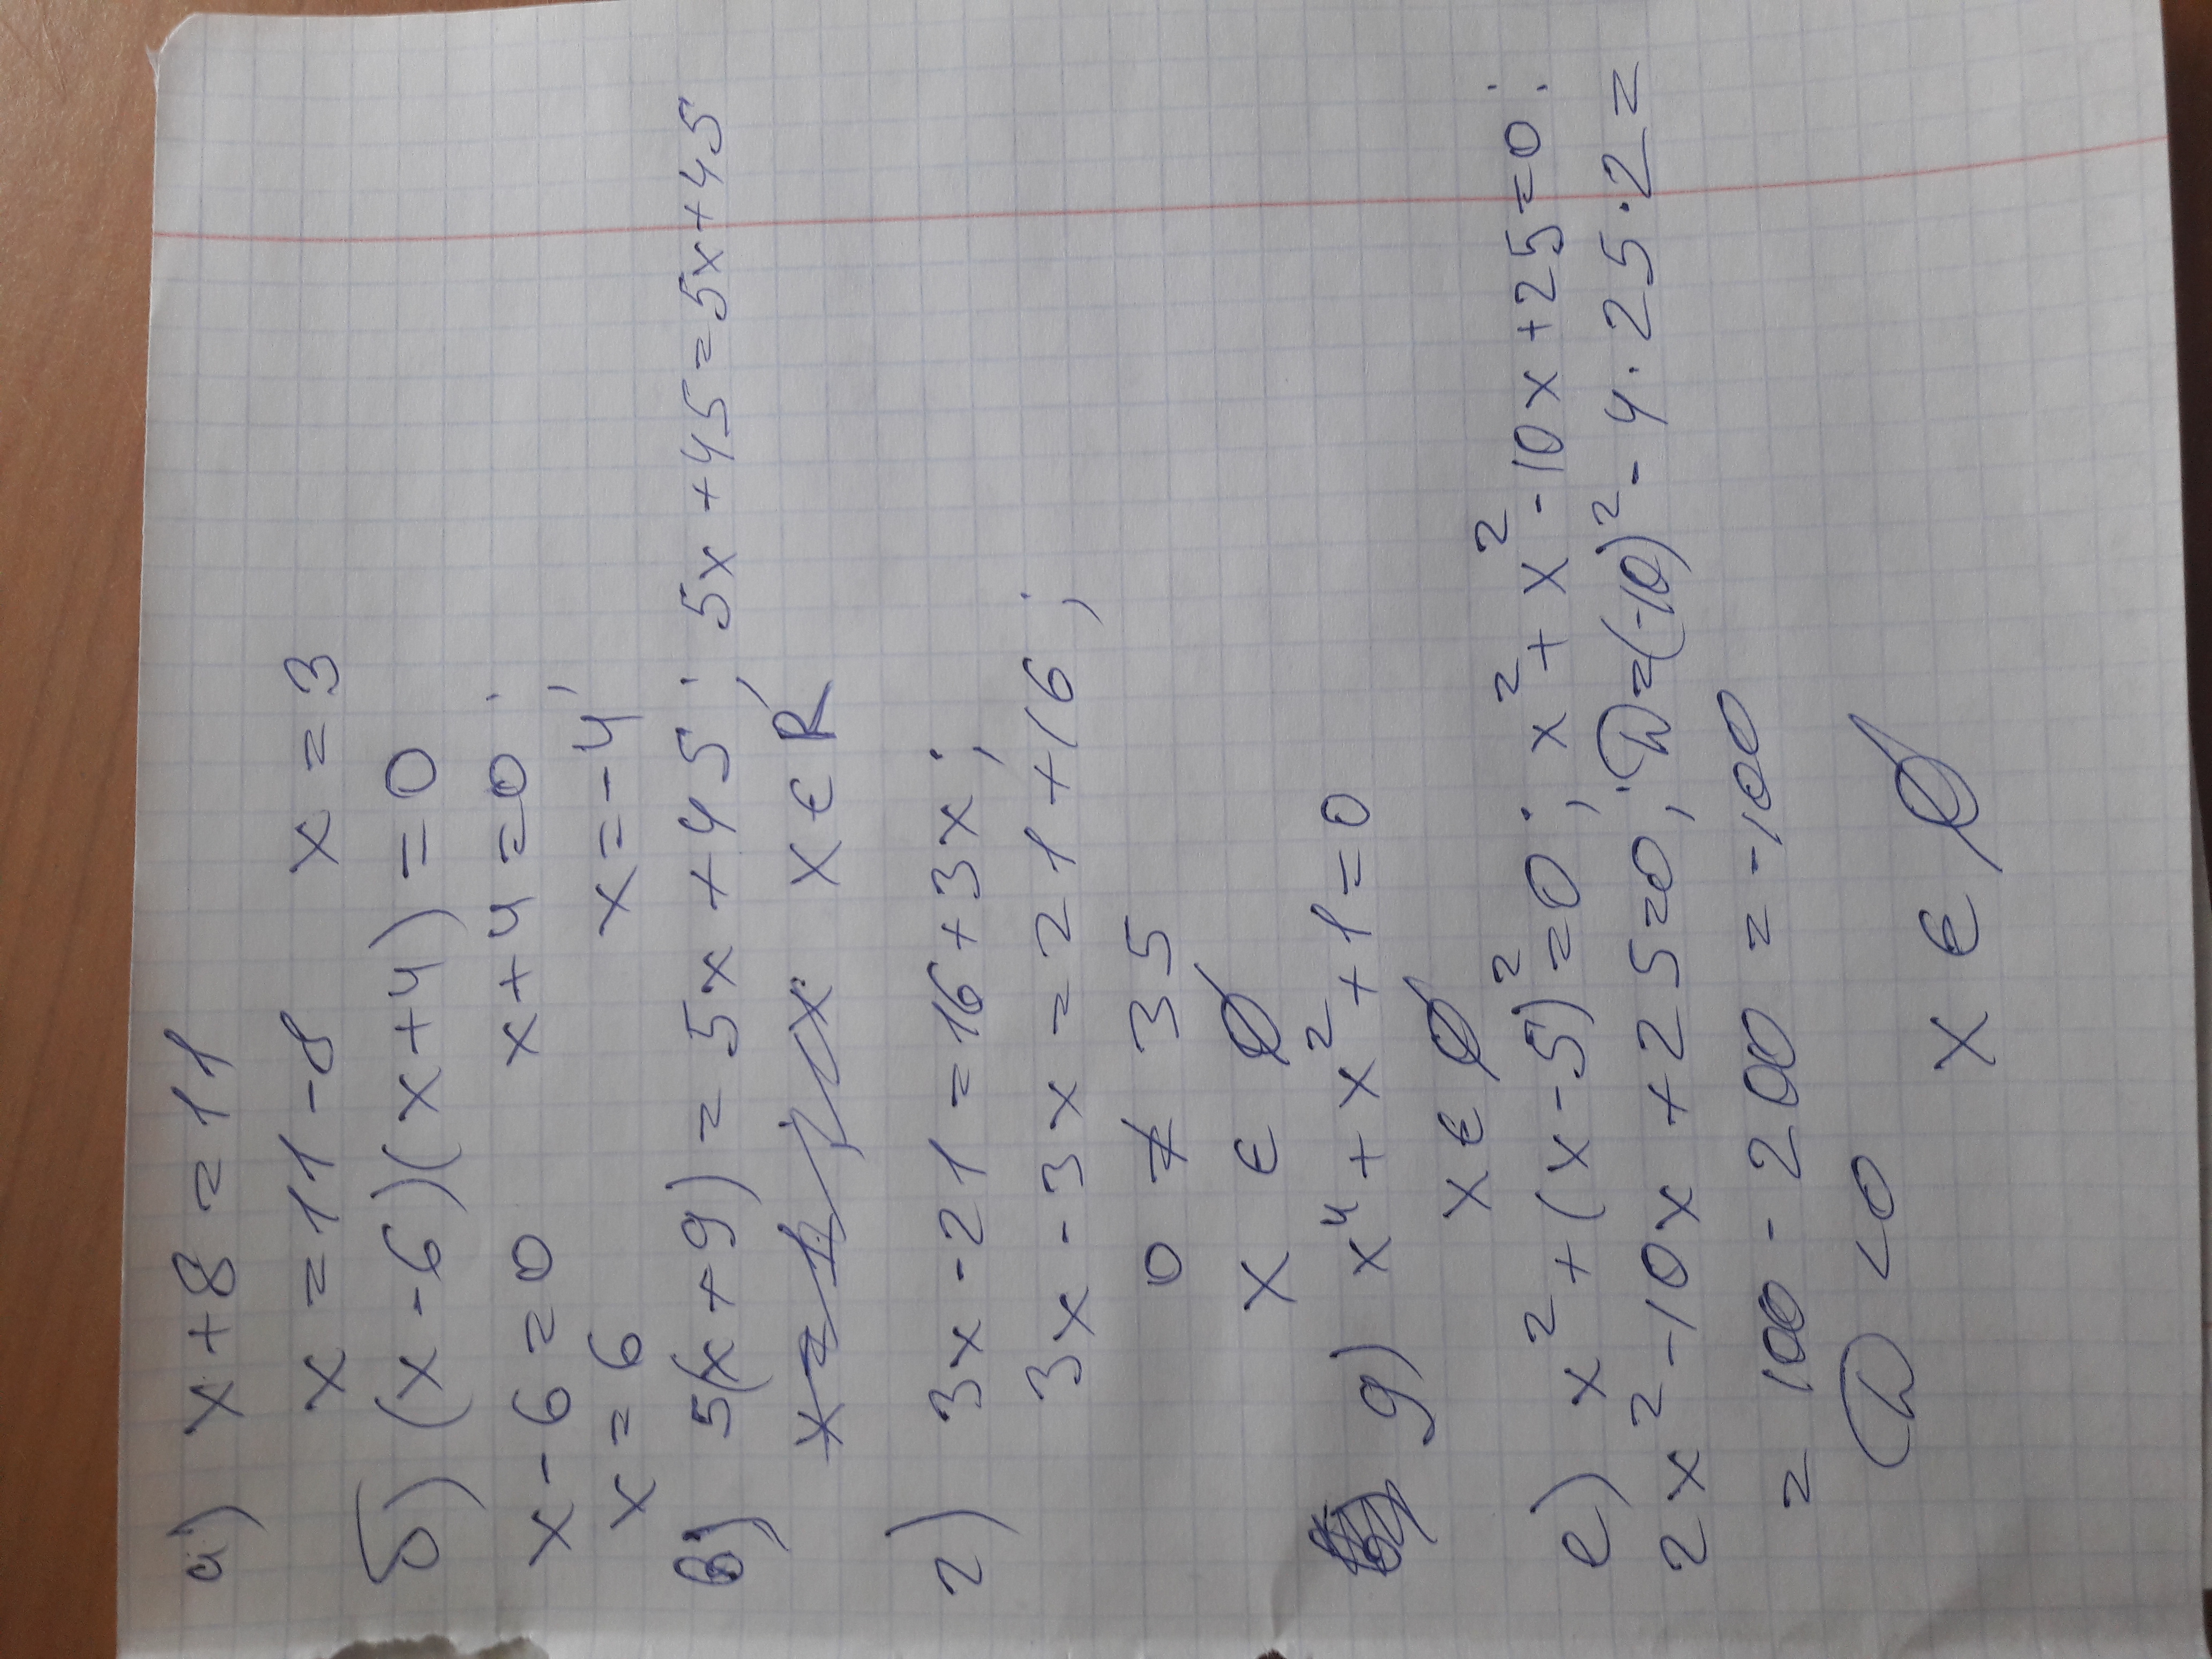 а) x+8=11
x=11-8 x=3
б) (x-6)(x+4)=0
x-6=0 x+4=0;
x=6 x=-4
в) 5(x+9)=5x+45; 5x+45=5x+45
x∈R
г) 3x-21=16+3x;
3x-3x=21+16;
0≠35
x∈∅
g) x⁴+x²+1=0
x∈∅
е) x²+(x-5)²=0; x²+x²-10x+25=0;
2x²-10x+25=0; D=(-10)²-4·25·2=
=100-200=-100
D<0 x∈∅